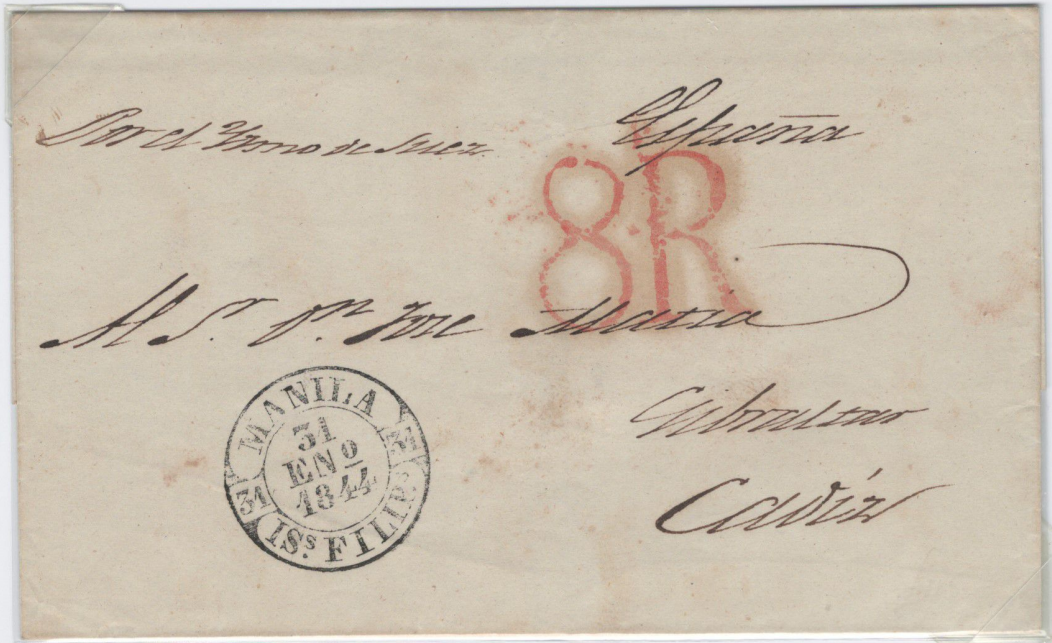 Por el Ysmo de Suez.
España
8R
Al Sr. Dn. Jose Maria
Gibraltar
Cadiz
MANILA
31
31
31
ENº
1844
ISs. FILIPs.